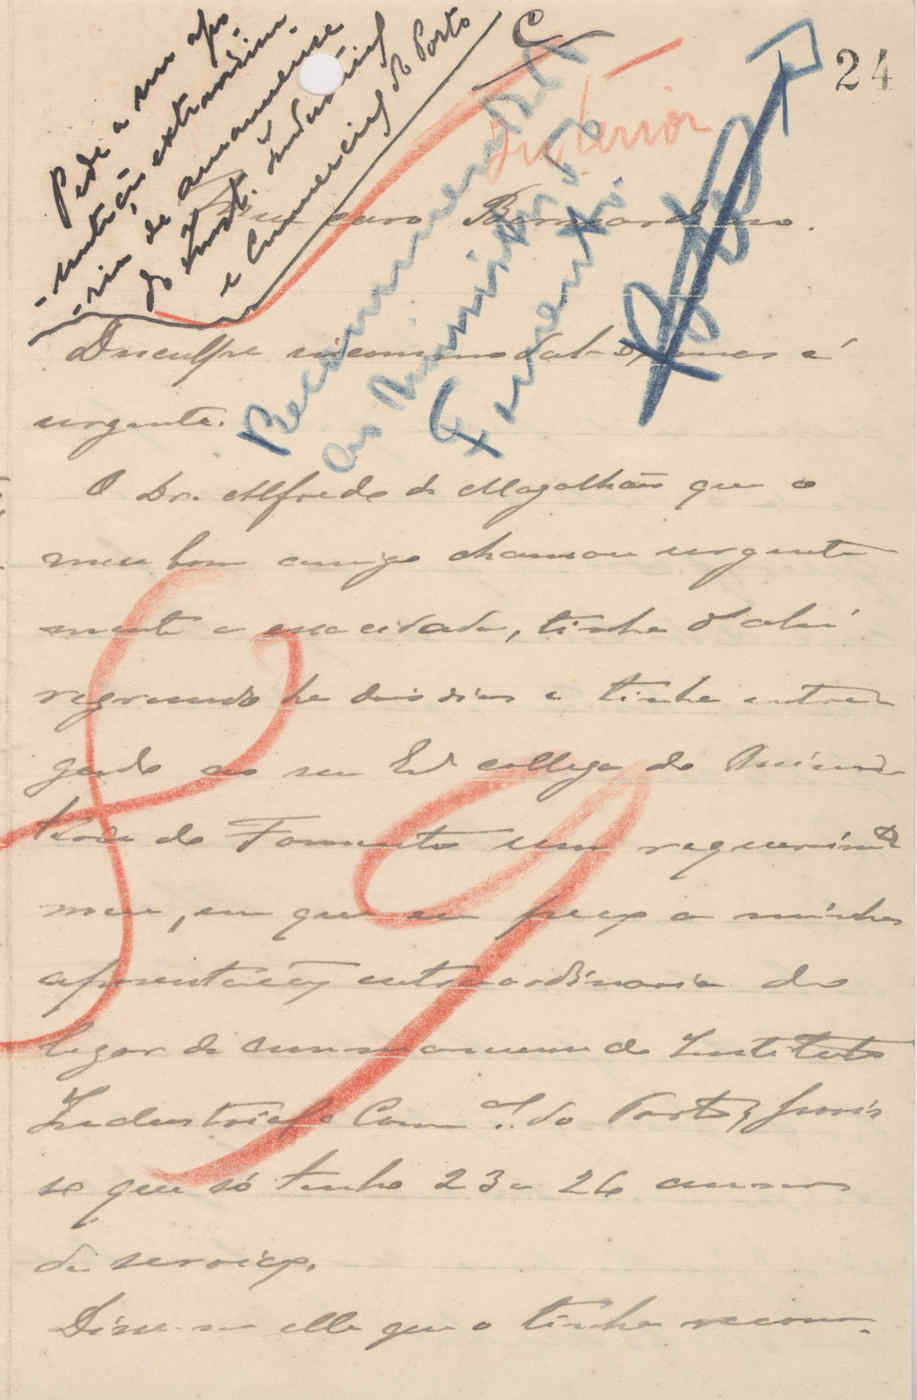 24
C
Pede a sua apo
-sentação extraordina-
-ria de amanuense
do Inst. industrial
e commercial do Porto
Interior
Recommendado
ao Ministro do
Fomento
Meu caro Bernardino.
Desculpe incommodal-o, mas é
urgente.
O Dr. Alfredo de Magalhães que o
meu bom amigo chamou urgente
mente a essa cidade, tinha d'ahi
regressado ha dois dias e tinha entre-
gado ao seu Ex.º collega do Minis-
terio do Fomento um requerim.to
meu, em que eu peço a minha
aposentação extraordinaria do
logar de amanuense do Instituto
Industrial e Com.al do Porto, pois
se que só tenho 23 a 24 annos
de serviço.
Disse-me elle que o tinha recom-